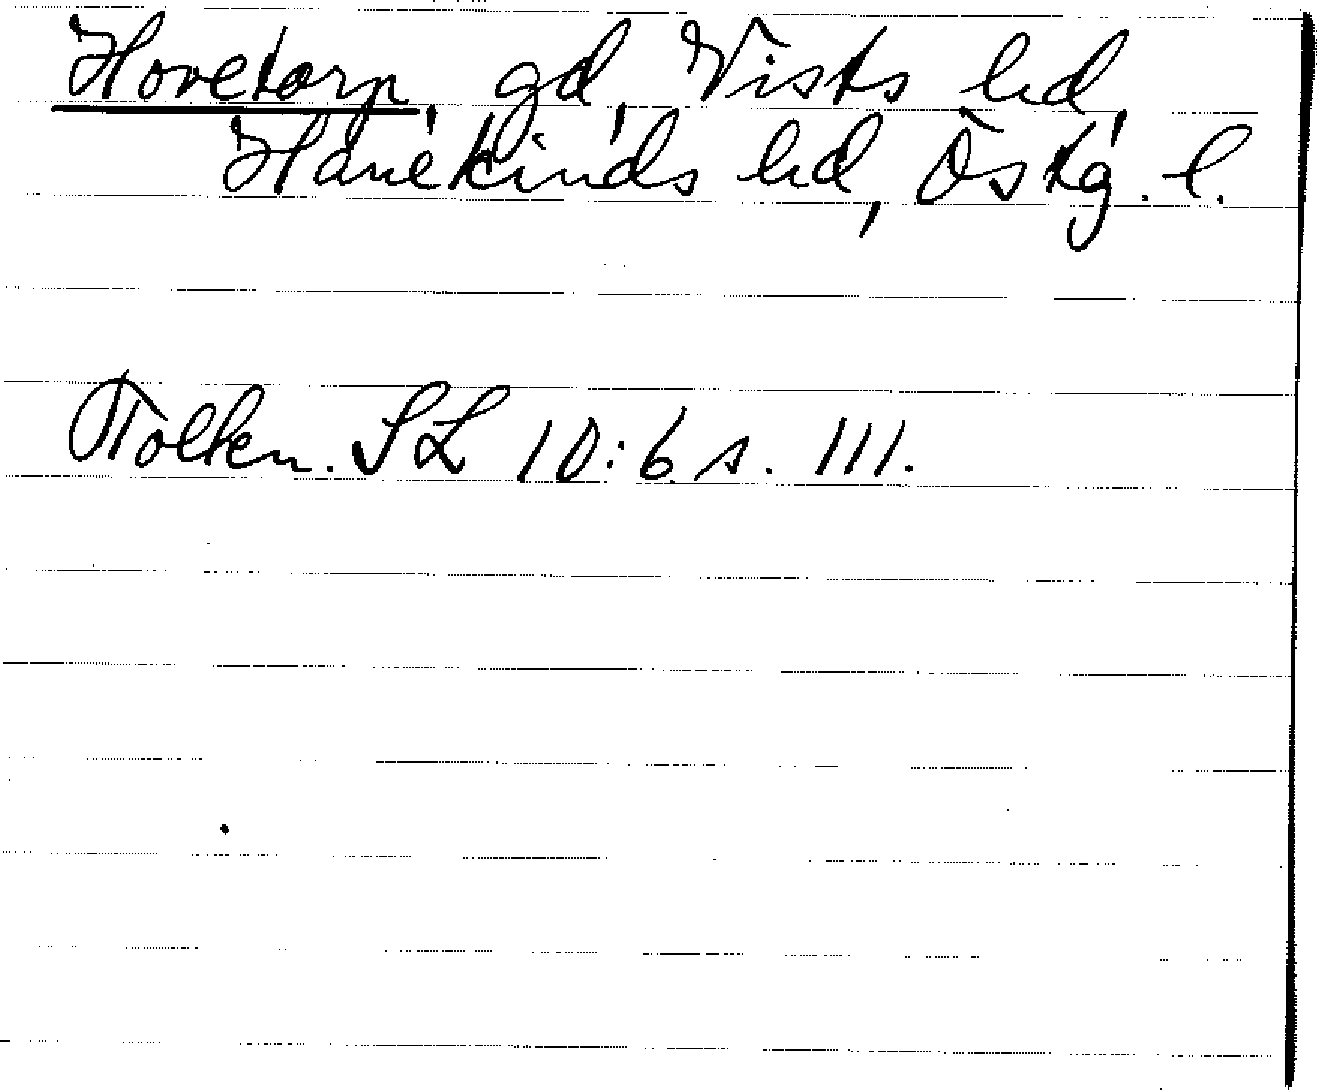 Hovetorp, gd, Vists hd,
Hanekinds hd, Östg. l.
Tolkn. SL 10:6 s. 111.